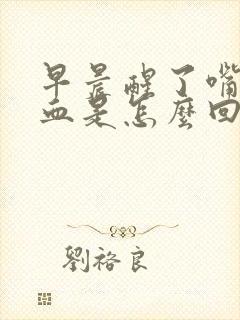 早晨醒了嘴
血是怎麼回
劉裕良